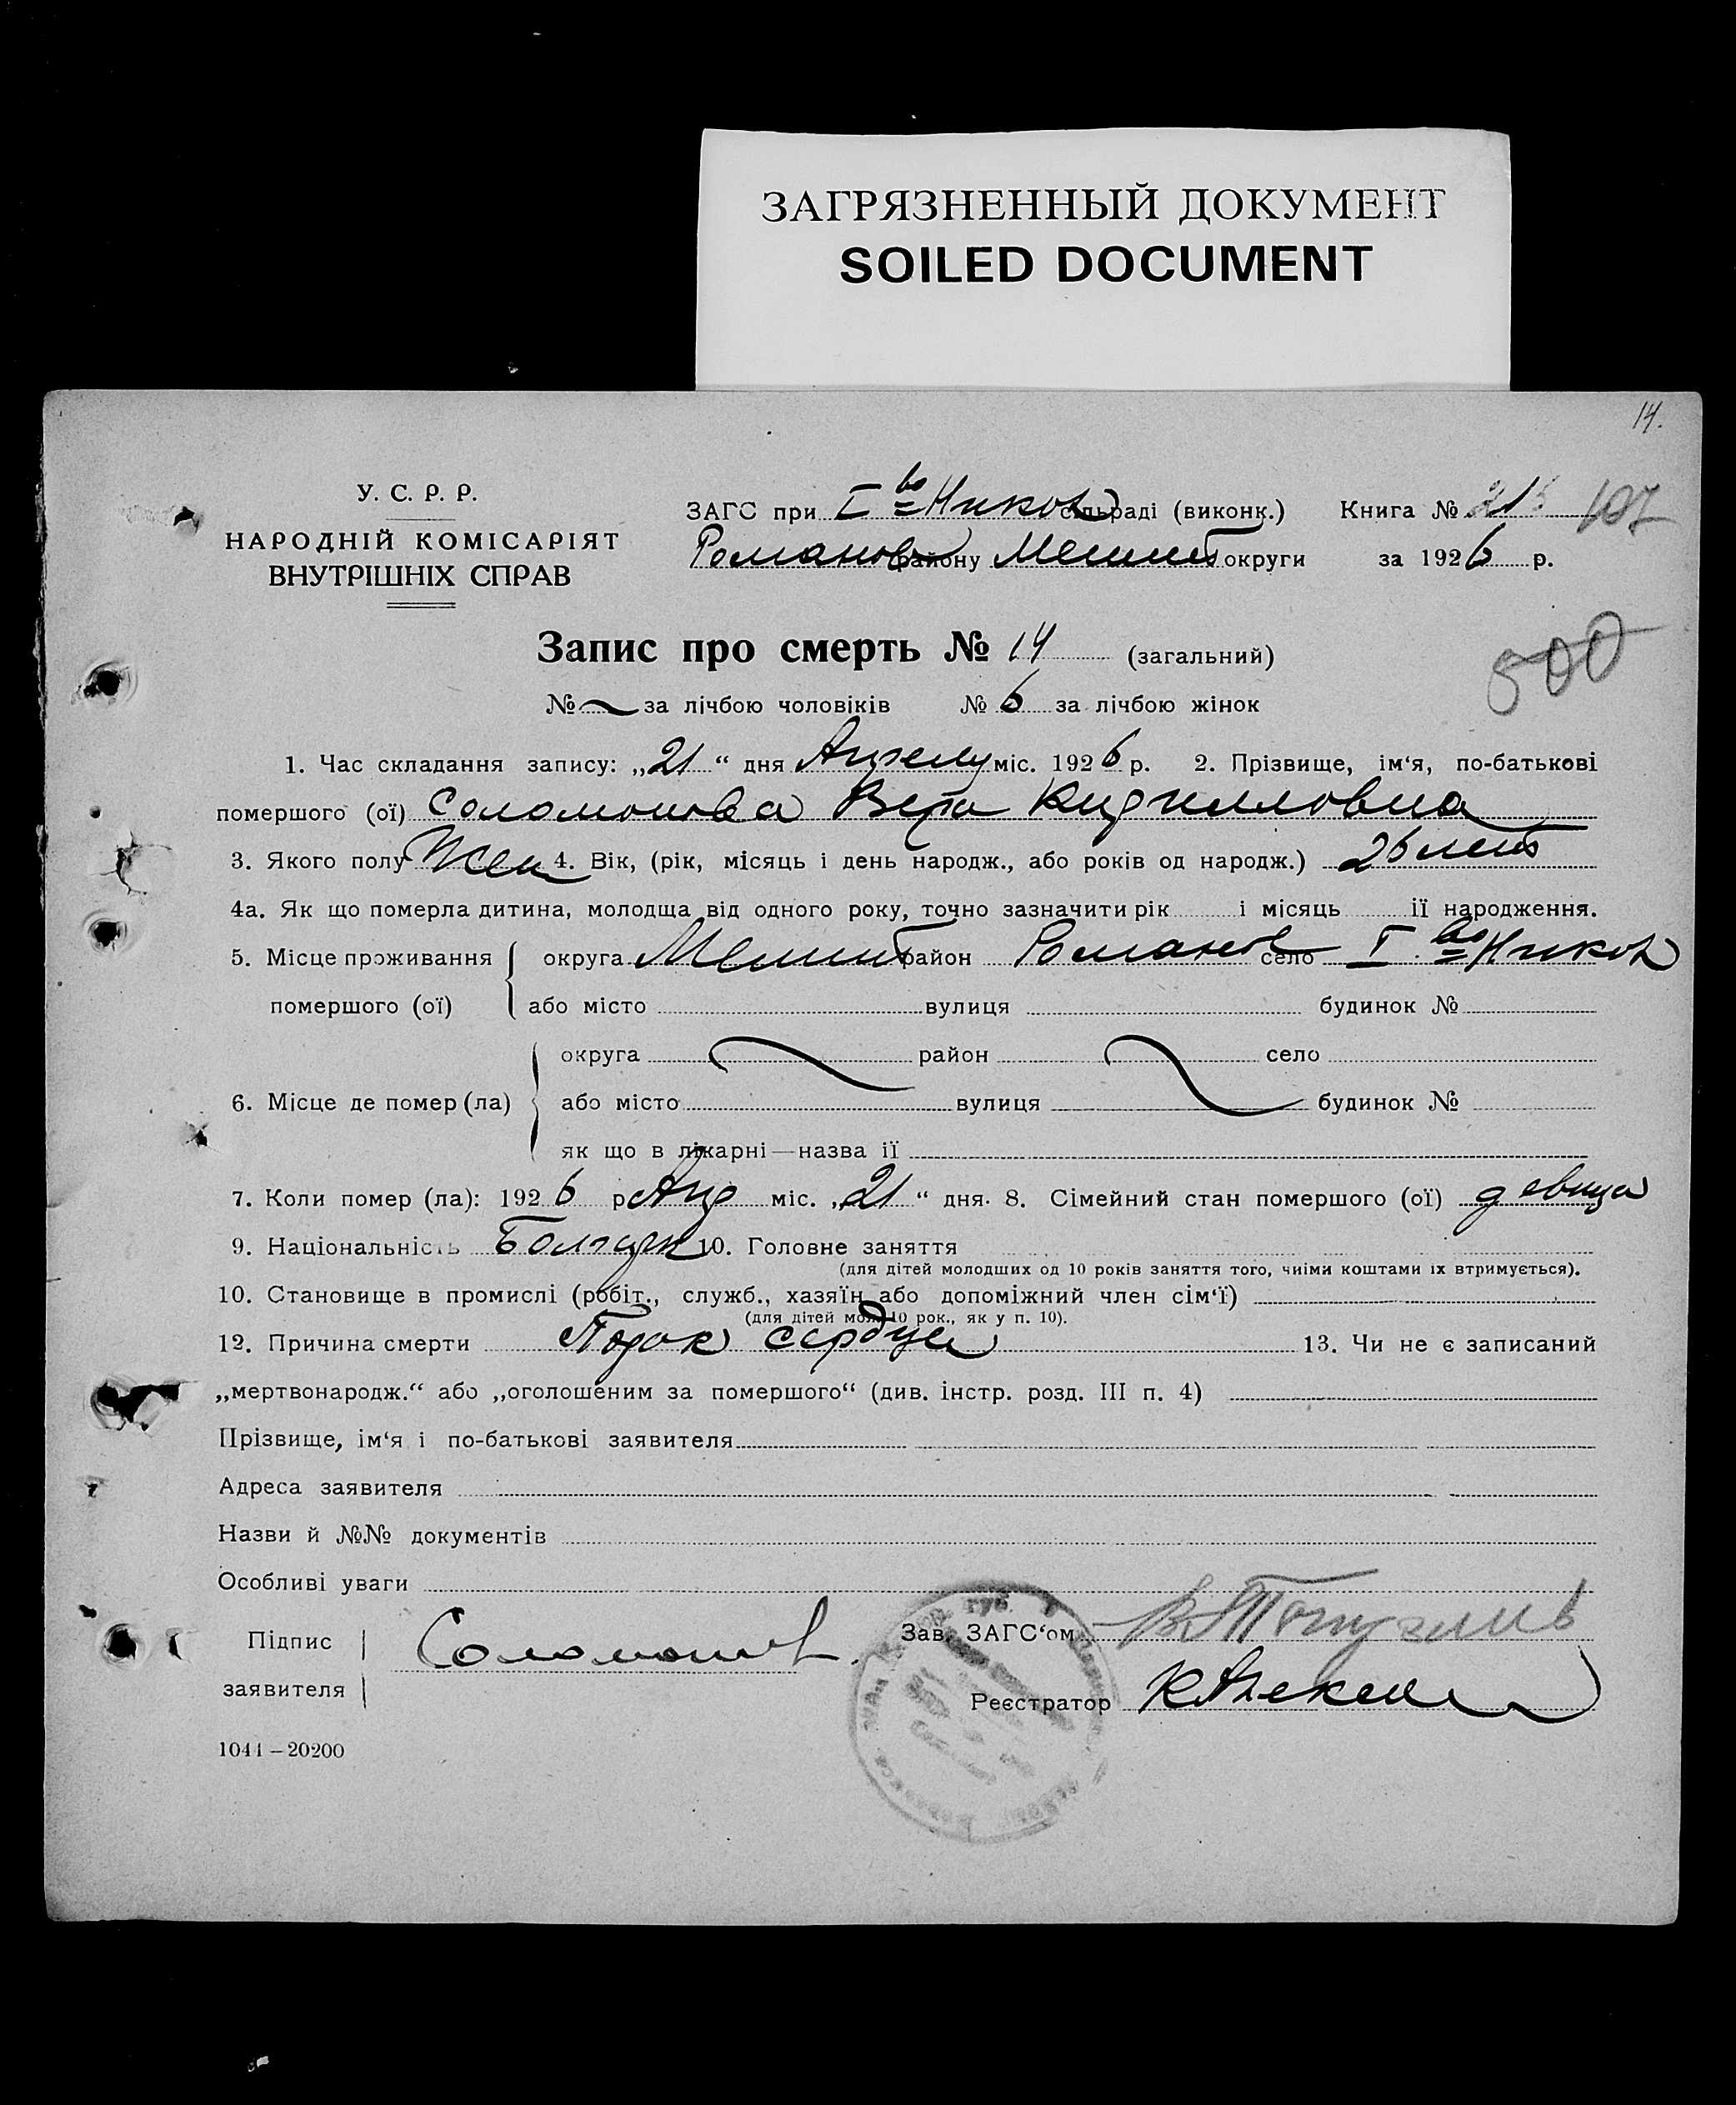 ЗАГРЯЗНЕННЫЙ ДОКУМЕНТ
SOILED DOCUMENT
14.
У. С. Р. Р.
НАРОДНІЙ КОМІСАРІЯТ
ВНУТРІШНІХ СПРАВ
ЗАГС при І во Никол сільраді (виконк.) Книга № 107
Романов району Мелит округи за 1926 р.
Запис про смерть № 14 (загальний)
500
№ за лічбою чоловіків № 6 за лічбою жінок
1. Час складання запису: „21“ дня міс. 1926 р. 2. Прізвище, ім‘я, по-батькові
помершого (ої) Соломонова Вера Кирилловна
3. Якого полу Жен 4. Вік, (рік, місяць і день народж., або років од народж.) 26 лет
4а. Як що померла дитина, молодща від одного року, точно зазначити рік і місяць ії народження.
5. Місце проживання округа Мелит район Романов село І во Никол
помершого (ої) або місто вулиця будинок №
округа район село
6. Місце де помер (ла) або місто вулиця будинок №
як що в лікарні—назва ії
7. Коли помер (ла): 1926 р Апр міс. „21“ дня. 8. Сімейний стан помершого (ої) девица
9. Національність Болгарк 10. Головне заняття
(для дітей молодших од 10 років заняття того, чиїми коштами іх втримується).
10. Становище в промислі (робіт., служб., хазяїн або допоміжний член сім‘ї)
(для дітей мол. 10 рок., як у п. 10).
12. Причина смерти Порок сердца 13. Чи не є записаний
„мертвонародж.“ або „оголошеним за помершого“ (див. інстр. розд. III п. 4)
Прізвище, ім‘я і по-батькові заявителя
Адреса заявителя
Назви й №№ документів
Особливі уваги
Підпис Соломонов Зав. ЗАГС‘ом
заявителя Реєстратор
1044 – 20200